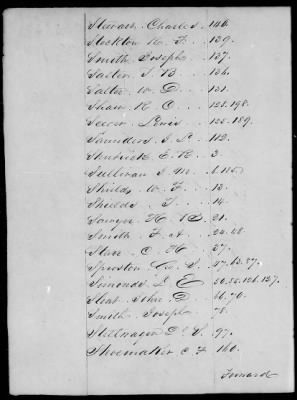 Stewart Charles 146.
Stockton R. F. 139.
Smith Joseph 137.
Salter T. B. 136.
Salter W. D. 131.
Shaw R. C. 123. 198.
Lewis 189.
Saunders J. L. 112.
Shubrick E. R. 3.
Sullivan J. M.
Shields W. F. 13.
Shields T. 14.
Sawyer H. B. 21.
Smith F. A. 24. 48.
Starr C. H. 37.
Sproston G. S. 47. 62. 87.
Simonds L. E. 126. 127.
Sloat John D. 66. 70.
Smith Joseph 78.
Stellwagen D. S. 97.
Shoemaker C. F. 160.
Forward